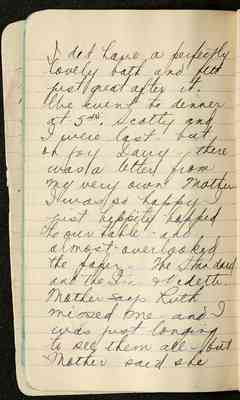 I did have a perfectly
lovely bath and felt
just great after it.
We went to dinner
at 5 Scotty and
I were last but
oh joy Davy there
was a letter from
my very own Mother
I was so happy I
just hippity hopped
to our table and
almost overlooked
the paper. The Standard
and the
Mother says Ruth
missed me and I
was just longing
to see them all but
Mother said she